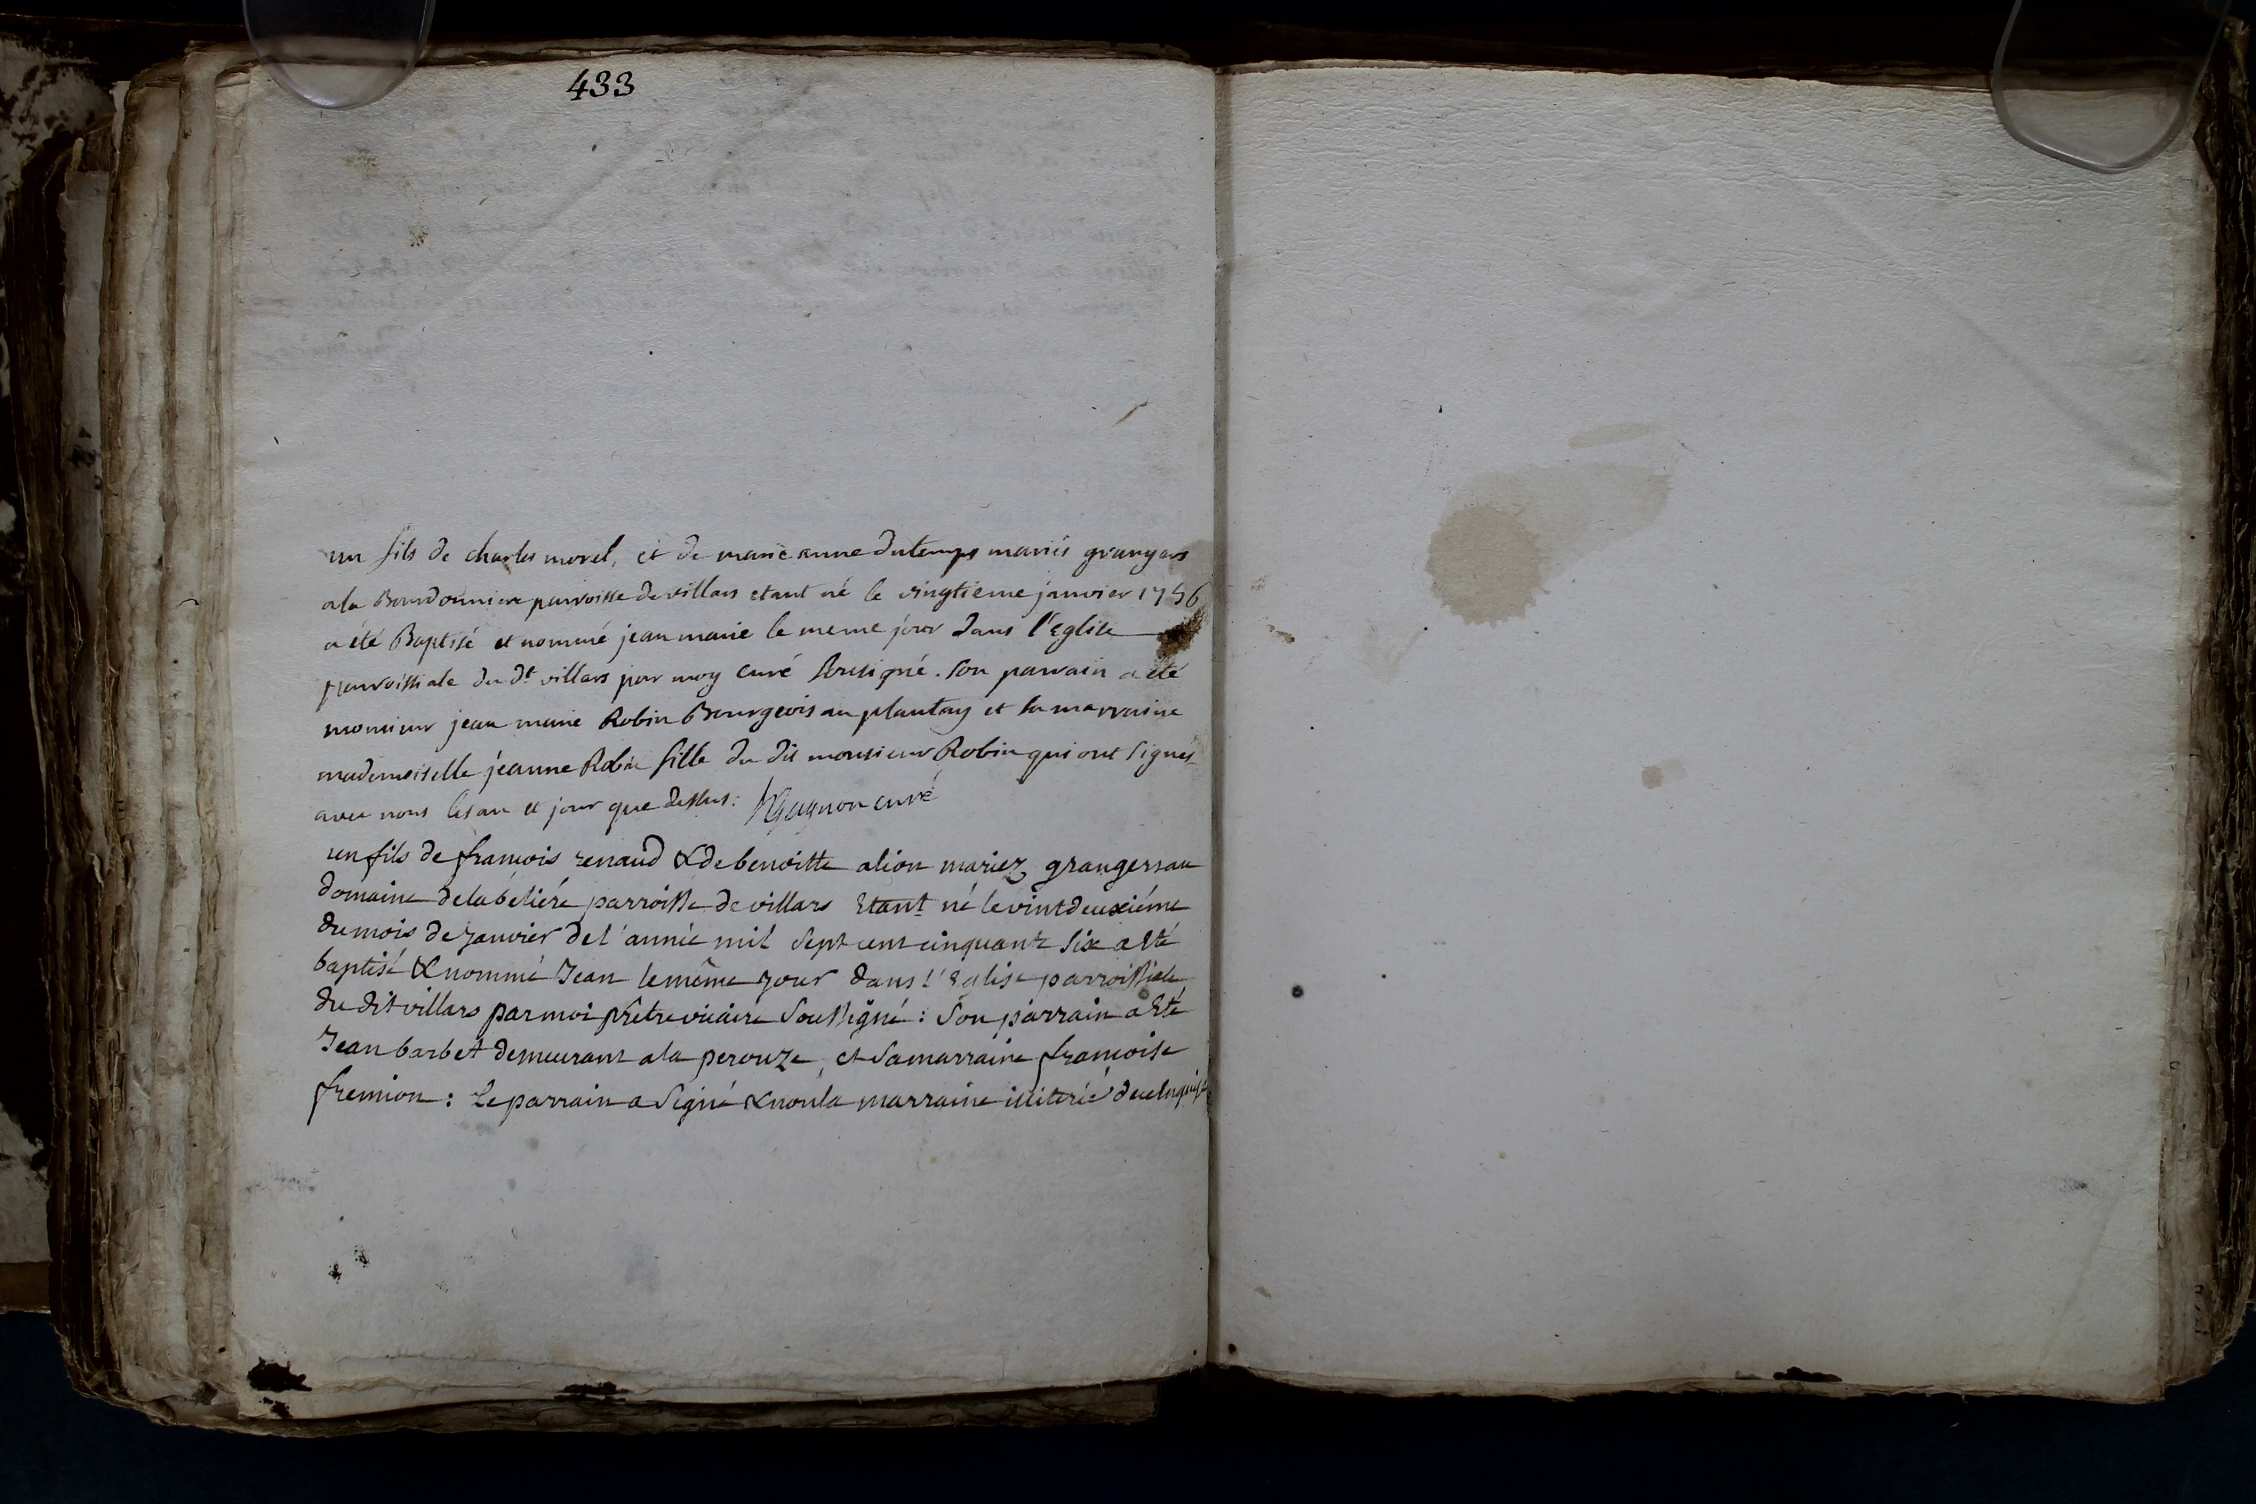 433
un fils de charles morel, et de marie anne dutemps mariés grangers
a la Bourdonniere parroisse de villars etant né le vingtieme janvier 1756
a été Baptisé et nommé jean marie le meme jour dans l'Eglise
parroissiale du dt villars par moy curé sousigné. son parrain a été
monsieur jean marie Robin Bourgeois au plantay et sa marraine
mademoiselle jeanne Robin fille du dit monsieur Robin qui ont signés
avec nous les an et jour que dessus: Gagnon curé
un fils de francois renaud & de benoitte alion mariez grangers au
domaine de la béliére parroisse de villars Etant né le vint deuxiéme
du mois de Janvier de l'année mil sept cent cinquante six a Eté
baptisé & nommé Jean le même jour dans l'Eglise parroissiale
du dit villars par moi prêtre vicaire soussigné: son parrain a Eté
Jean barbet demeurant a la perouze, et sa marraine francoise
fremion: Le parrain a signé & non la marraine illiterée de ce enquise